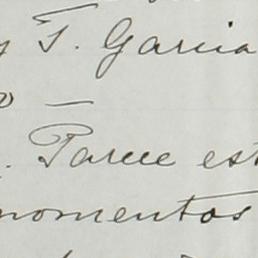 y F. Garcia
o —
. Parece est
momentos